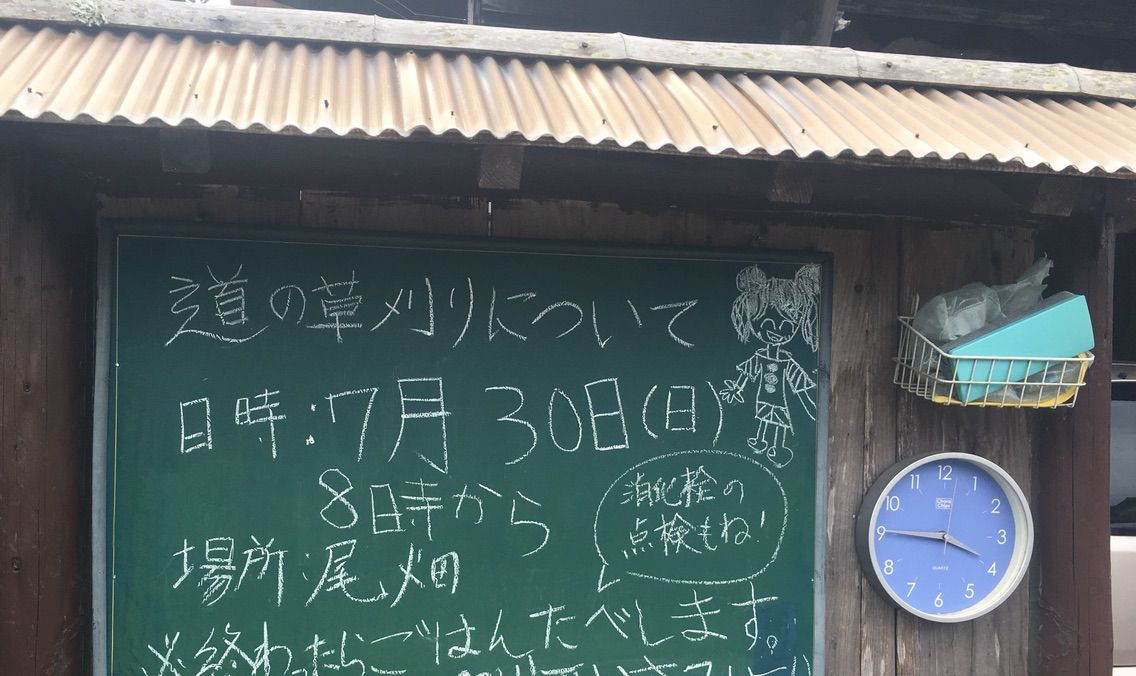 道の草刈りについて
日時:7月30日(日)
8時から
消化栓の
点検もね!
場所:尾畑
※終わったらごはんたべします。
12
1
2
3
4
5
6
7
8
9
10
QUARTZ